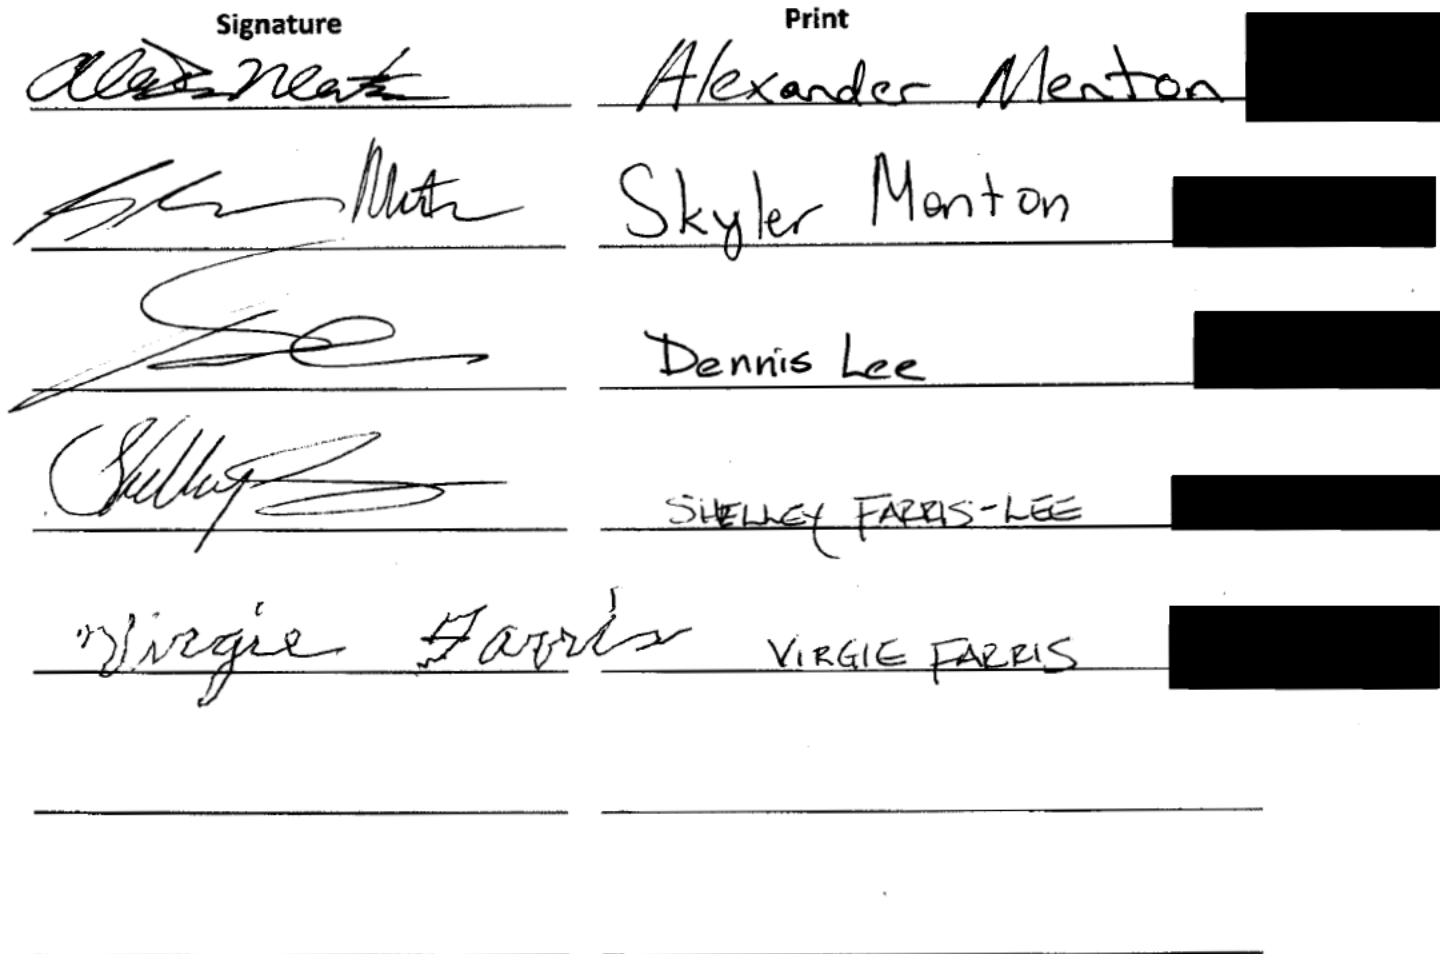 Signature Print
Alexander Menton
Skyler Menton
Dennis Lee
Shelley SHELLEY FARRIS-LEE
Virgie Farris VIRGIE FARRIS